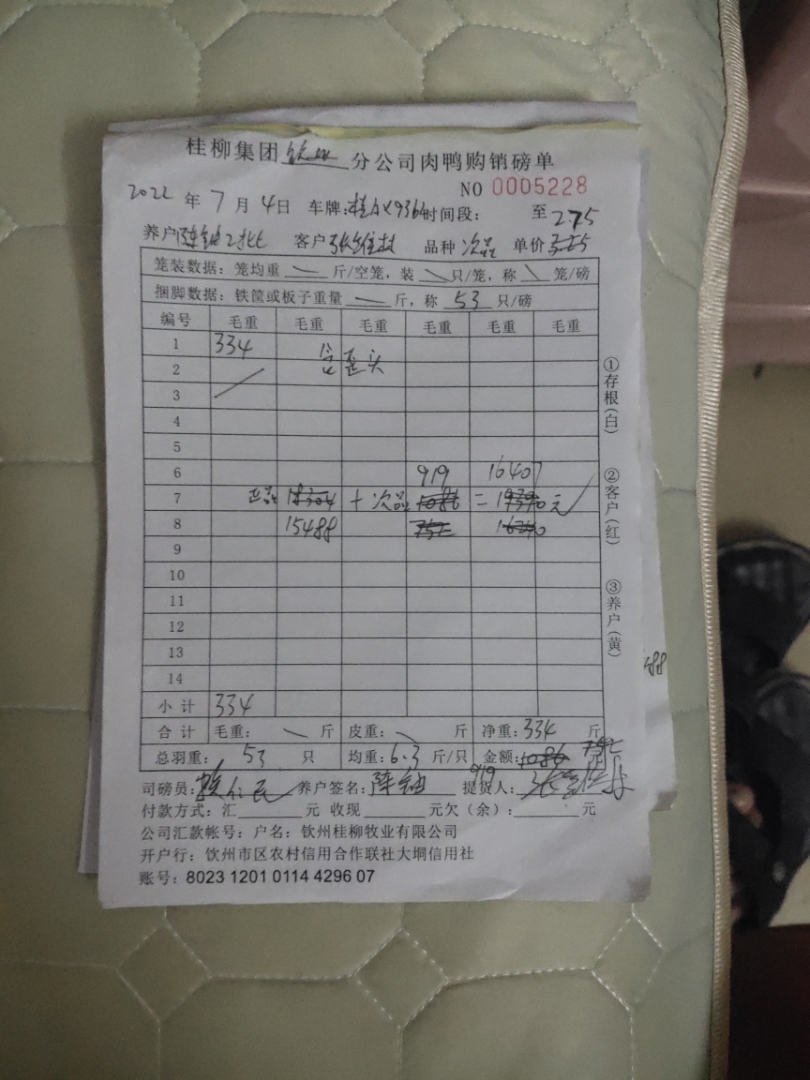 桂柳集团 钦州 分公司肉鸭购销磅单
NO 0005228
2022 年 7 月 4 日 车牌: 时间段: 至 2.75
养户 陈铀2批 客户 张 品种 次品 单价
笼装数据:笼均重 斤/空笼,装 只/笼,称 笼/磅
捆脚数据:铁筐或板子重量 斤,称 53 只/磅
编号 毛重 毛重 毛重 毛重 毛重 毛重
1 334
含歪头
2
3
4
5
6 919 16407
7 正品 + 次品 1086 = 元
8 15488 752
9
10
11
12
13
14
小计 334
合计 毛重: 斤 皮重: 斤 净重:334 斤
总羽重: 53 只 均重:6.3 斤/只 金额:1086 752
919
司磅员: 养户签名:陈铀 提货人:
付款方式:汇 元 收现 元欠(余): 元
公司汇款帐号:户名:钦州桂柳牧业有限公司
开户行:钦州市区农村信用合作联社大垌信用社
账号:8023 1201 0114 4296 07
①存根(白)
②客户(红)
③养户(黄)